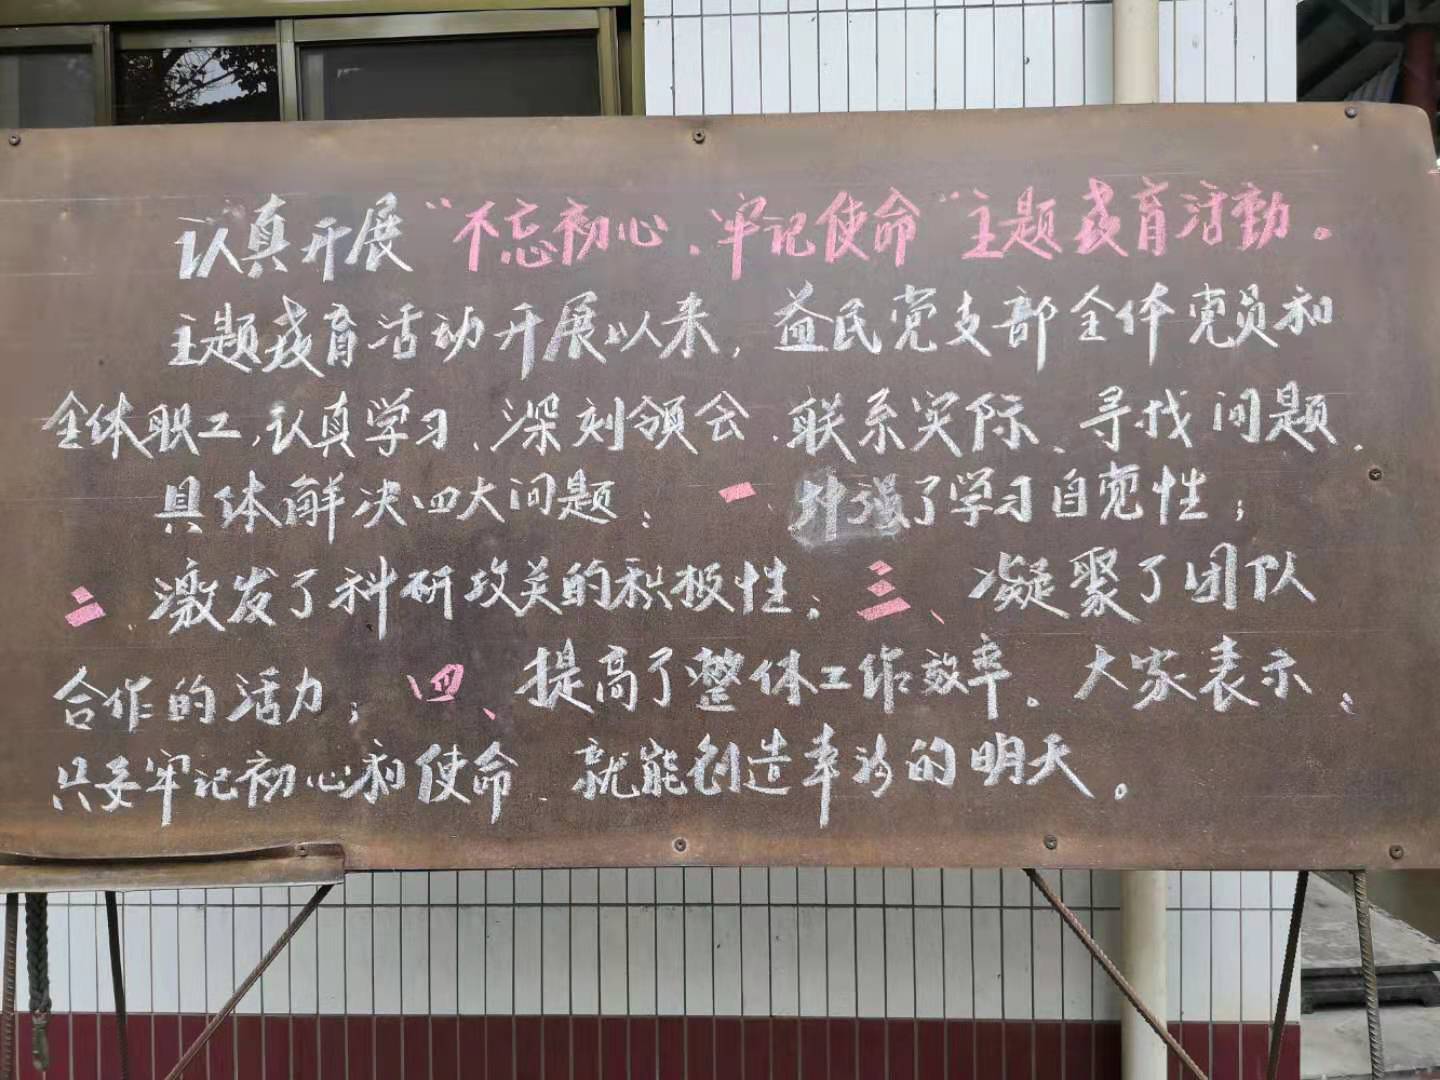 认真开展“不忘初心、牢记使命”主题教育活动。
主题教育活动开展以来，益民党支部全体党员和
全体职工，认真学习、深刻领会、联系实际、寻找问题、
具体解决四大问题：一、增强了学习自觉性；
二、激发了科研攻关的积极性；三、凝聚了团队
合作的活力；四、提高了整体工作效率。大家表示、
只要牢记初心和使命、就能创造幸福的明天。